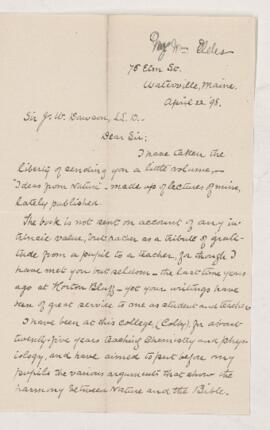 Wm Elder
75 Elm St.
Waterville, Maine.
April 22 '98.
Sir J. W. Dawson, LL.D.-
Dear Sir;
I have taken the
liberty of sending you a little volume,-
"Ideas from Nature"- made up of lectures of mine,
lately published.
The book is not sent on account of any in-
trinsic value, but rather as a tribute of grati-
tude from a pupil to a teacher, for though I
have met you but seldom - the last time years
ago at Horton Bluff - yet your writings have
been of great service to one as student and teacher.
I have been at this college, (Colby), for about
twenty-five years teaching Chemistry and phys-
iology, and have aimed to put before my
pupils the various arguments that show the
harmony between Nature and the Bible.